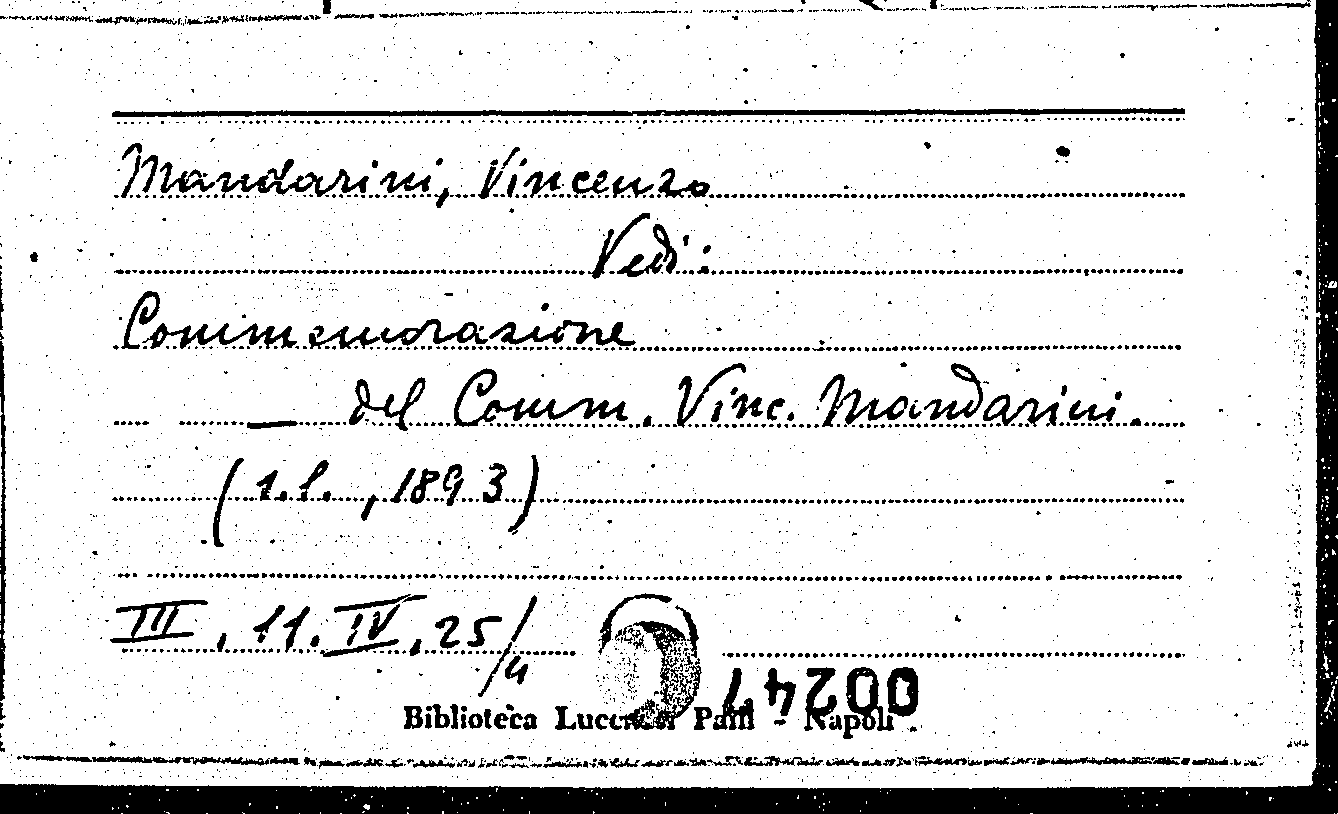 Mandarini, Vincenzo
Vedi:
Commemorazione
— del Comm. Vinc. Mandarini.
(s.l., 1893)
III. 11. IV. 25/4
00247
Biblioteca Lucchesi Palli - Napoli